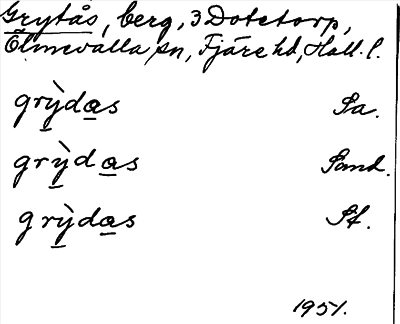 Grytås, berg, 3 Dotetorp,
Ölmevalla sn, Fjäre hd, Hall. l.
grỳdas Sa.
grỳdas Sand.
grỳdas Sf.
1951.